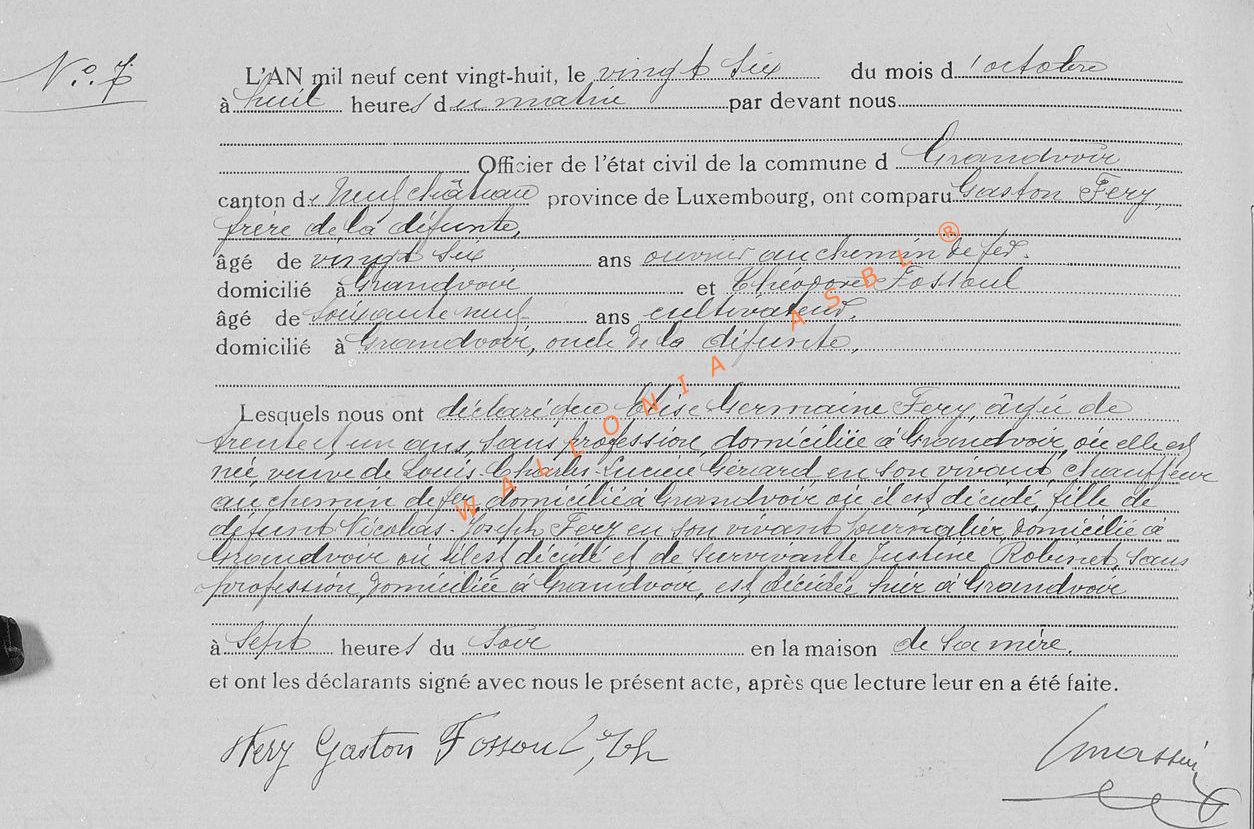 N°. 7
L'AN mil neuf cent vingt-huit, le vingt six du mois d'octobre
à huit heures du matin par devant nous
Officier de l'état civil de la commune d Grandvoir
canton de Neufchâteau province de Luxembourg, ont comparu Gaston Fery,
frère de la défunte,
âgé de vingt six ans ouvrier au chemin de fer.
domicilié à Grandvoir et Théodore Fossoul
âgé de soixante neuf ans cultivateur.
domicilié à Grandvoir, oncle de la défunte,
Lesquels nous ont déclaré que Elise Germaine Fery, âgée de
trente et un ans, sans profession, domiciliée à Grandvoir, où elle est
née, veuve de Louis Charles Lucien Gérard, en son vivant chauffeur
au chemin de fer, domicilié à Grandvoir où il est décédé, fille de
défunt Nicolas-Joseph Fery en son vivant journalier domicilié à
Grandvoir où il est décédé et de survivante Justine Robinet, sans
profession, domiciliée à Grandvoir, est décédée hier à Grandvoir
à sept heures du soir en la maison de sa mère.
et ont les déclarants signé avec nous le présent acte, après que lecture leur en a été faite.
Fery Gaston Fossoul, Th
WALLONIA ASBL ®